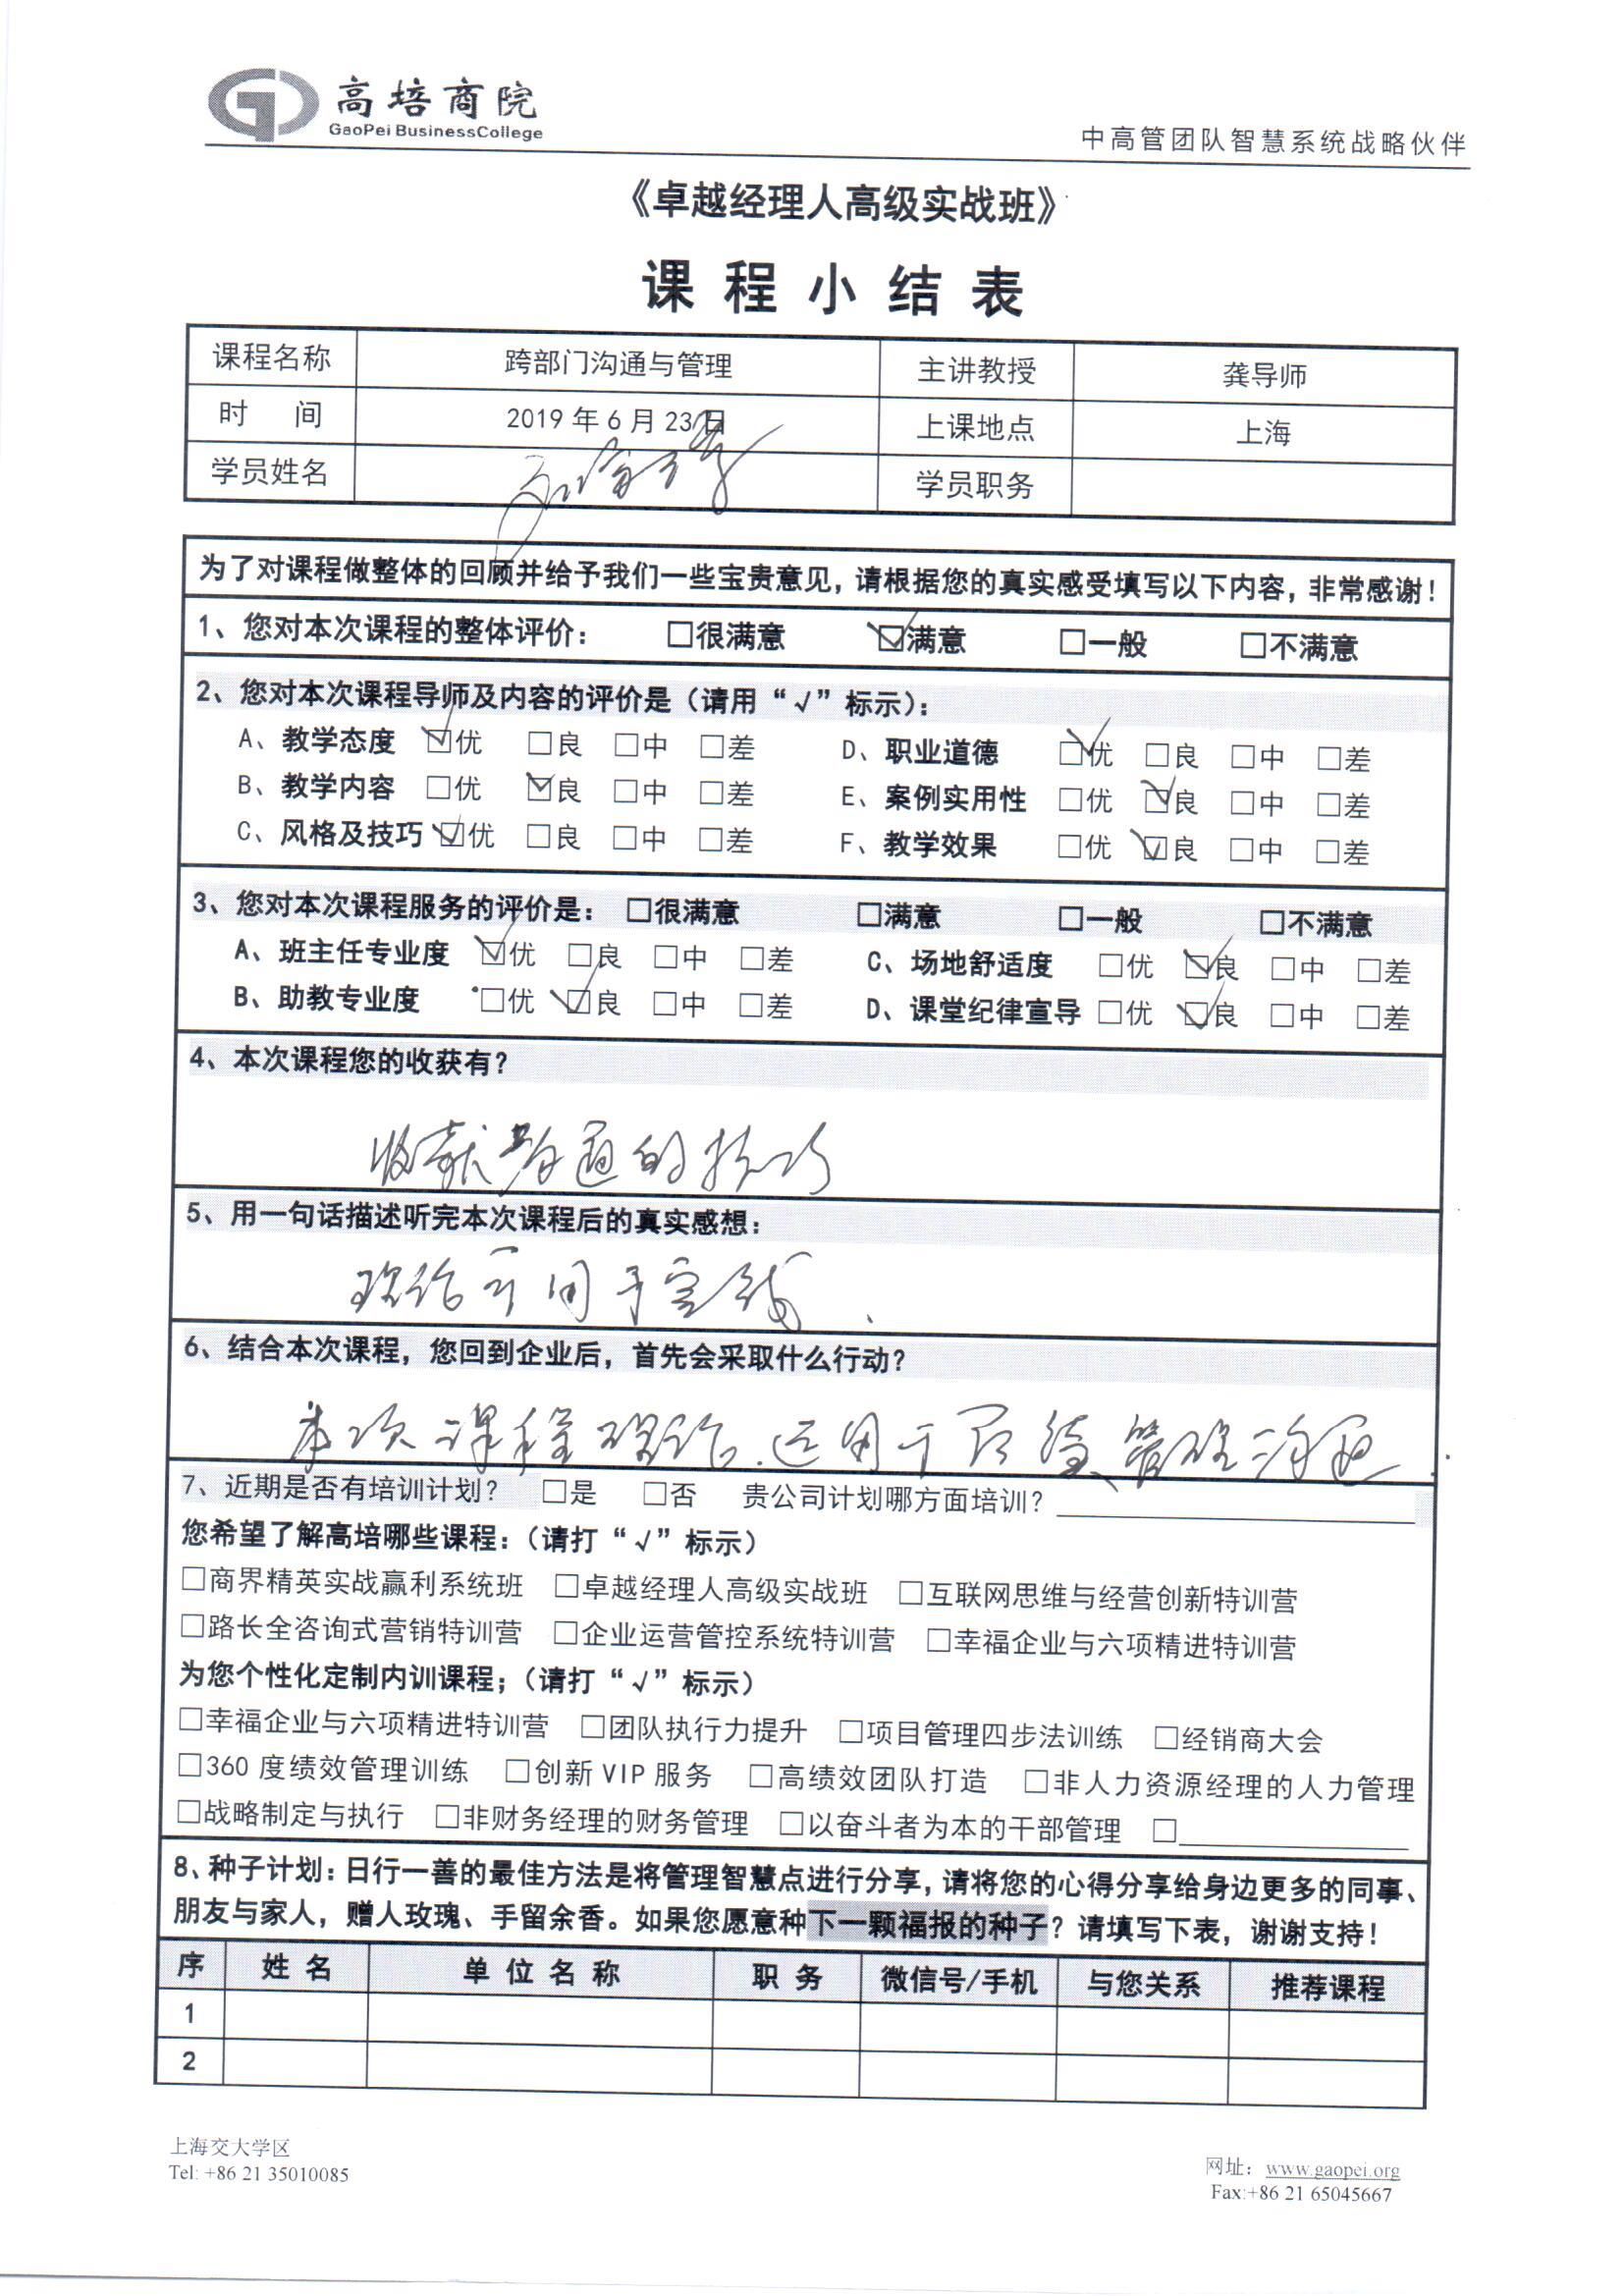 高培商院
GaoPei BusinessCollege
中高管团队智慧系统战略伙伴
《卓越经理人高级实战班》
课程小结表
课程名称 跨部门沟通与管理 主讲教授 龚导师
时 间 2019 年 6 月 23 日 上课地点 上海
学员姓名 学员职务
为了对课程做整体的回顾并给予我们一些宝贵意见，请根据您的真实感受填写以下内容，非常感谢！
1、您对本次课程的整体评价： □很满意 ☑满意 □一般 □不满意
2、您对本次课程导师及内容的评价是（请用“√”标示）：
A、教学态度 ☑优 □良 □中 □差 D、职业道德 ☑优 □良 □中 □差
B、教学内容 □优 ☑良 □中 □差 E、案例实用性 □优 ☑良 □中 □差
C、风格及技巧 ☑优 □良 □中 □差 F、教学效果 □优 ☑良 □中 □差
3、您对本次课程服务的评价是： □很满意 □满意 □一般 □不满意
A、班主任专业度 ☑优 □良 □中 □差 C、场地舒适度 □优 ☑良 □中 □差
B、助教专业度 □优 ☑良 □中 □差 D、课堂纪律宣导 □优 ☑良 □中 □差
4、本次课程您的收获有？
通的技巧
5、用一句话描述听完本次课程后的真实感想：
理论可用于实践.
6、结合本次课程，您回到企业后，首先会采取什么行动？
本次课程理论.运用于后续管理沟通.
7、近期是否有培训计划？ □是 □否 贵公司计划哪方面培训？
您希望了解高培哪些课程：（请打“√”标示）
□商界精英实战赢利系统班 □卓越经理人高级实战班 □互联网思维与经营创新特训营
□路长全咨询式营销特训营 □企业运营管控系统特训营 □幸福企业与六项精进特训营
为您个性化定制内训课程；（请打“√”标示）
□幸福企业与六项精进特训营 □团队执行力提升 □项目管理四步法训练 □经销商大会
□360 度绩效管理训练 □创新 VIP 服务 □高绩效团队打造 □非人力资源经理的人力管理
□战略制定与执行 □非财务经理的财务管理 □以奋斗者为本的干部管理 □
8、种子计划：日行一善的最佳方法是将管理智慧点进行分享，请将您的心得分享给身边更多的同事、
朋友与家人，赠人玫瑰、手留余香。如果您愿意种下一颗福报的种子？请填写下表，谢谢支持！
序 姓 名 单 位 名 称 职 务 微信号/手机 与您关系 推荐课程
1
2
上海交大学区
Tel: +86 21 35010085
网址：www.gaopei.org
Fax:+86 21 65045667